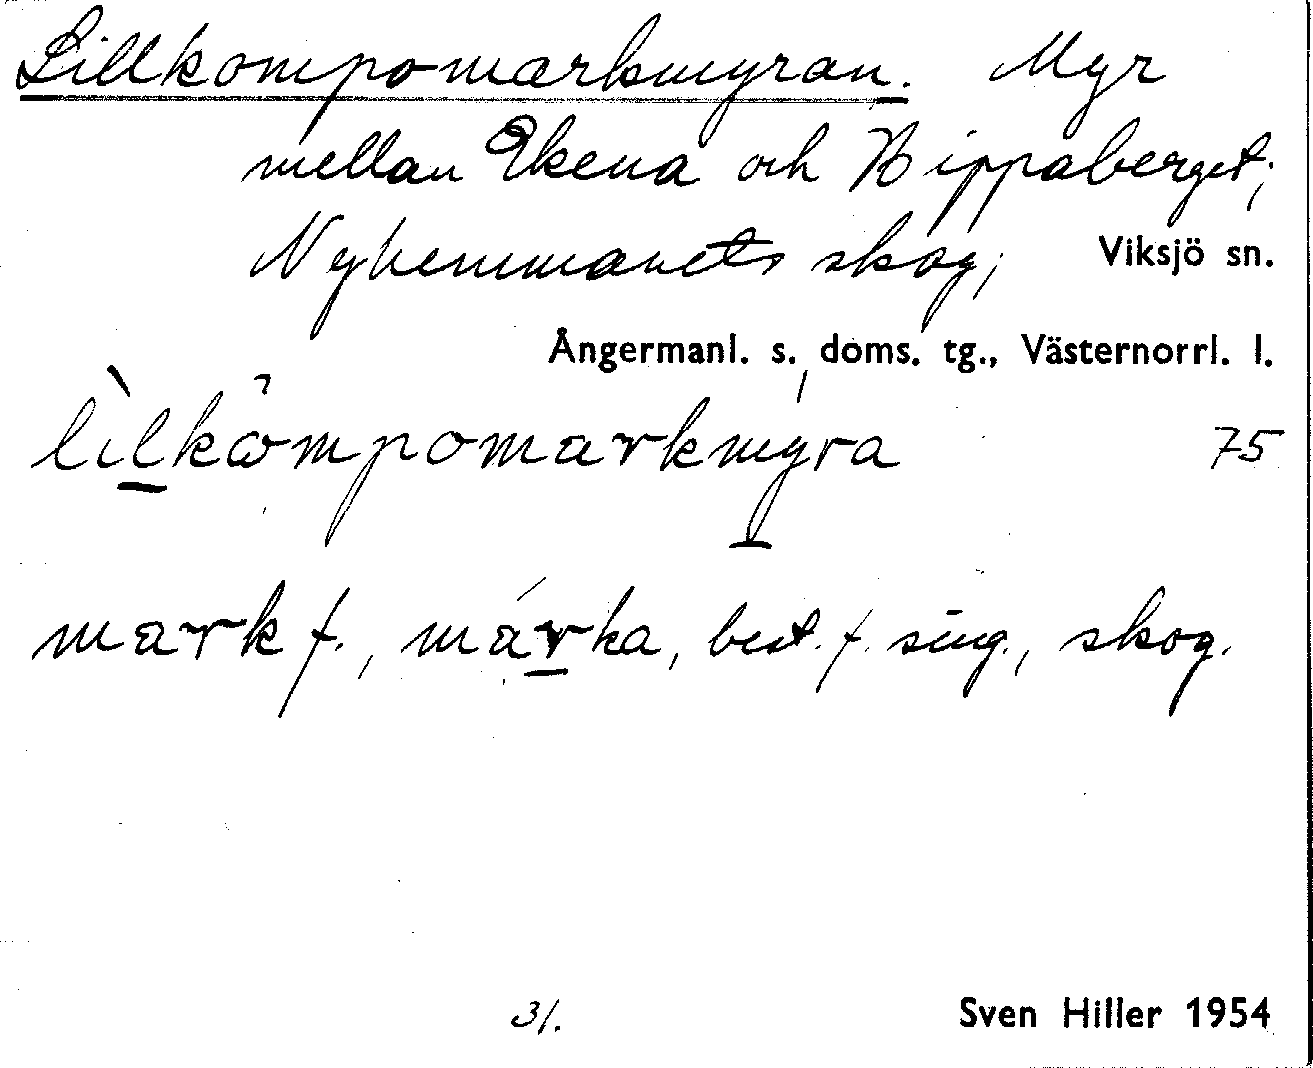 Lillkompomarkmyran. Myr
mellan Ekena och Bippaberget;
Nyhemmanets skog; Viksjö sn.
Ångermanl. s. doms. tg., Västernorrl. l.
lìlkơmpomarkmyra 75
mark f., márka, best. f. sing., skog.
31.
Sven Hiller 1954